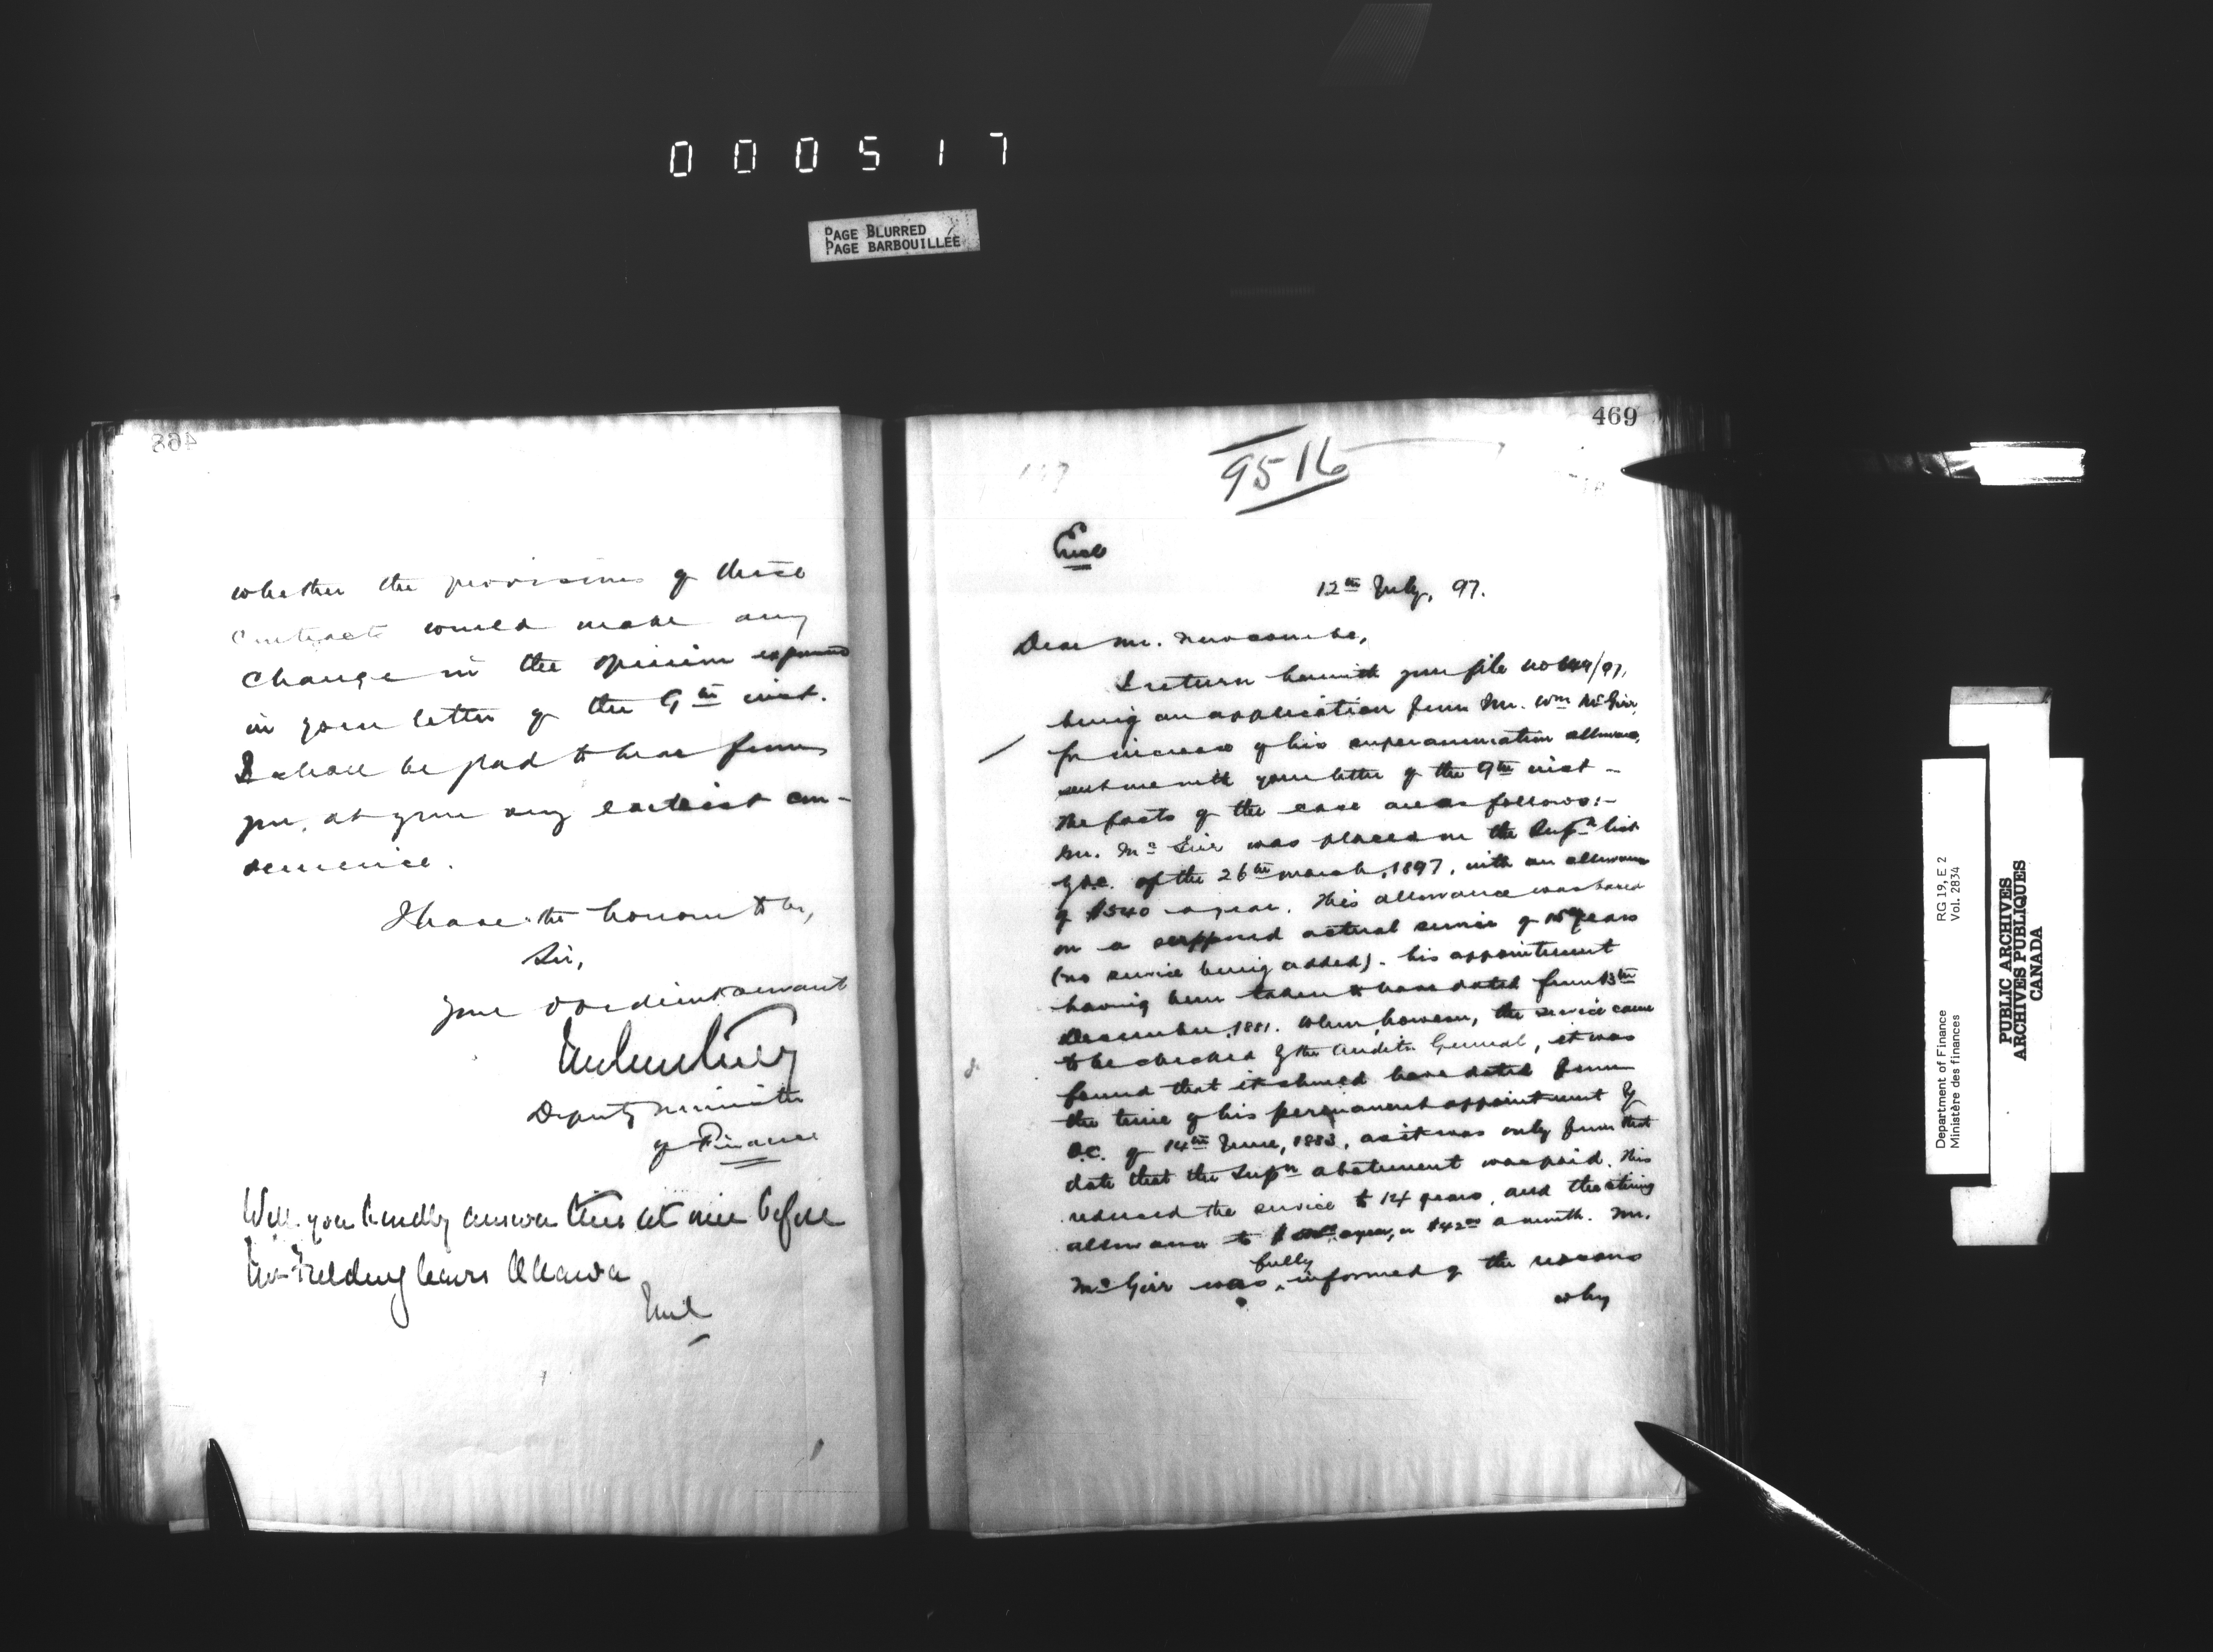 000517
PAGE BLURRED
PAGE BARBOUILLÉE
468
whether the provisions of these
contracts would make any
change in the opinion expressed
in your letter of the 9th inst.
I shall be glad to hear from
you, at your very earliest con-
venience.
I have the honour to be,
Sir,
Your obedient servant
Deputy Minister
of Finance
Will you kindly answer this at once before
Mr Fielding leaves Ottawa
469
9516
Encl
12th July, 97.
Dear Mr. Newcombe,
I return herewith your file no /97,
being an application from Mr. Wm McGirr,
for increase of his superannuation allowance,
sent me with your letter of the 9th inst -
The facts of the case are as follows:-
Mr. McGirr was placed on the Supn list
by O.C. of the 26th March, 1897, with an allowance
of $540 a year. This allowance was based
on a supposed actual service of 15 years
(no service being added). his appointment
having been taken to have dated from 13th
December, 1881. When, however, the service came
to be checked by the Auditor General, it was
found that it should have dated from
the time of his permanent appointment by
O.C. of 14th June, 1883, as it was only from that
date that the Supn abatement was paid. This
reduced the service to 14 years, and the
allowance to $ a year, or $42 a month. Mr.
McGirr was fully informed of the reasons
why
Department of Finance RG 19, E 2
Ministère des finances Vol. 2834
PUBLIC ARCHIVES
ARCHIVES PUBLIQUES
CANADA